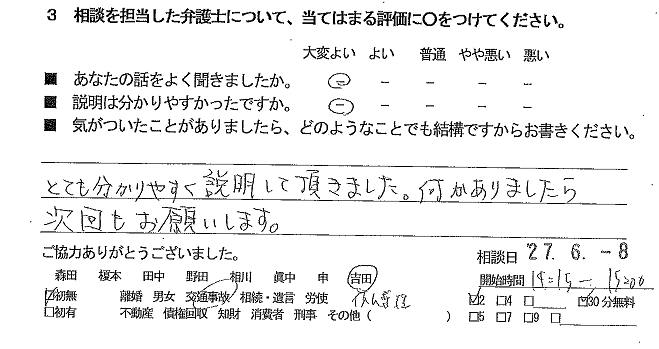 3 相談を担当した弁護士について、当てはまる評価に〇をつけてください。
大変よい よい 普通 やや悪い 悪い
■ あなたの話をよく聞きましたか。 – – – – –
■ 説明は分かりやすかったですか。 – – – – –
■ 気がついたことがありましたら、どのようなことでも結構ですからお書きください。
とても分かりやすく説明して頂きました。何かありましたら
次回もお願いします。
ご協力ありがとうございました。 相談日 '27.6.-8
森田 榎本 田中 野田 相川 眞中 申 吉田 開始時間
☑初無 離婚 男女 交通事故 相続・遺言 労使 ☑2 □4 □ ☑30分無料
□初有 不動産 債権回収 知財 消費者 刑事 その他( ) □5 □7 □9 □